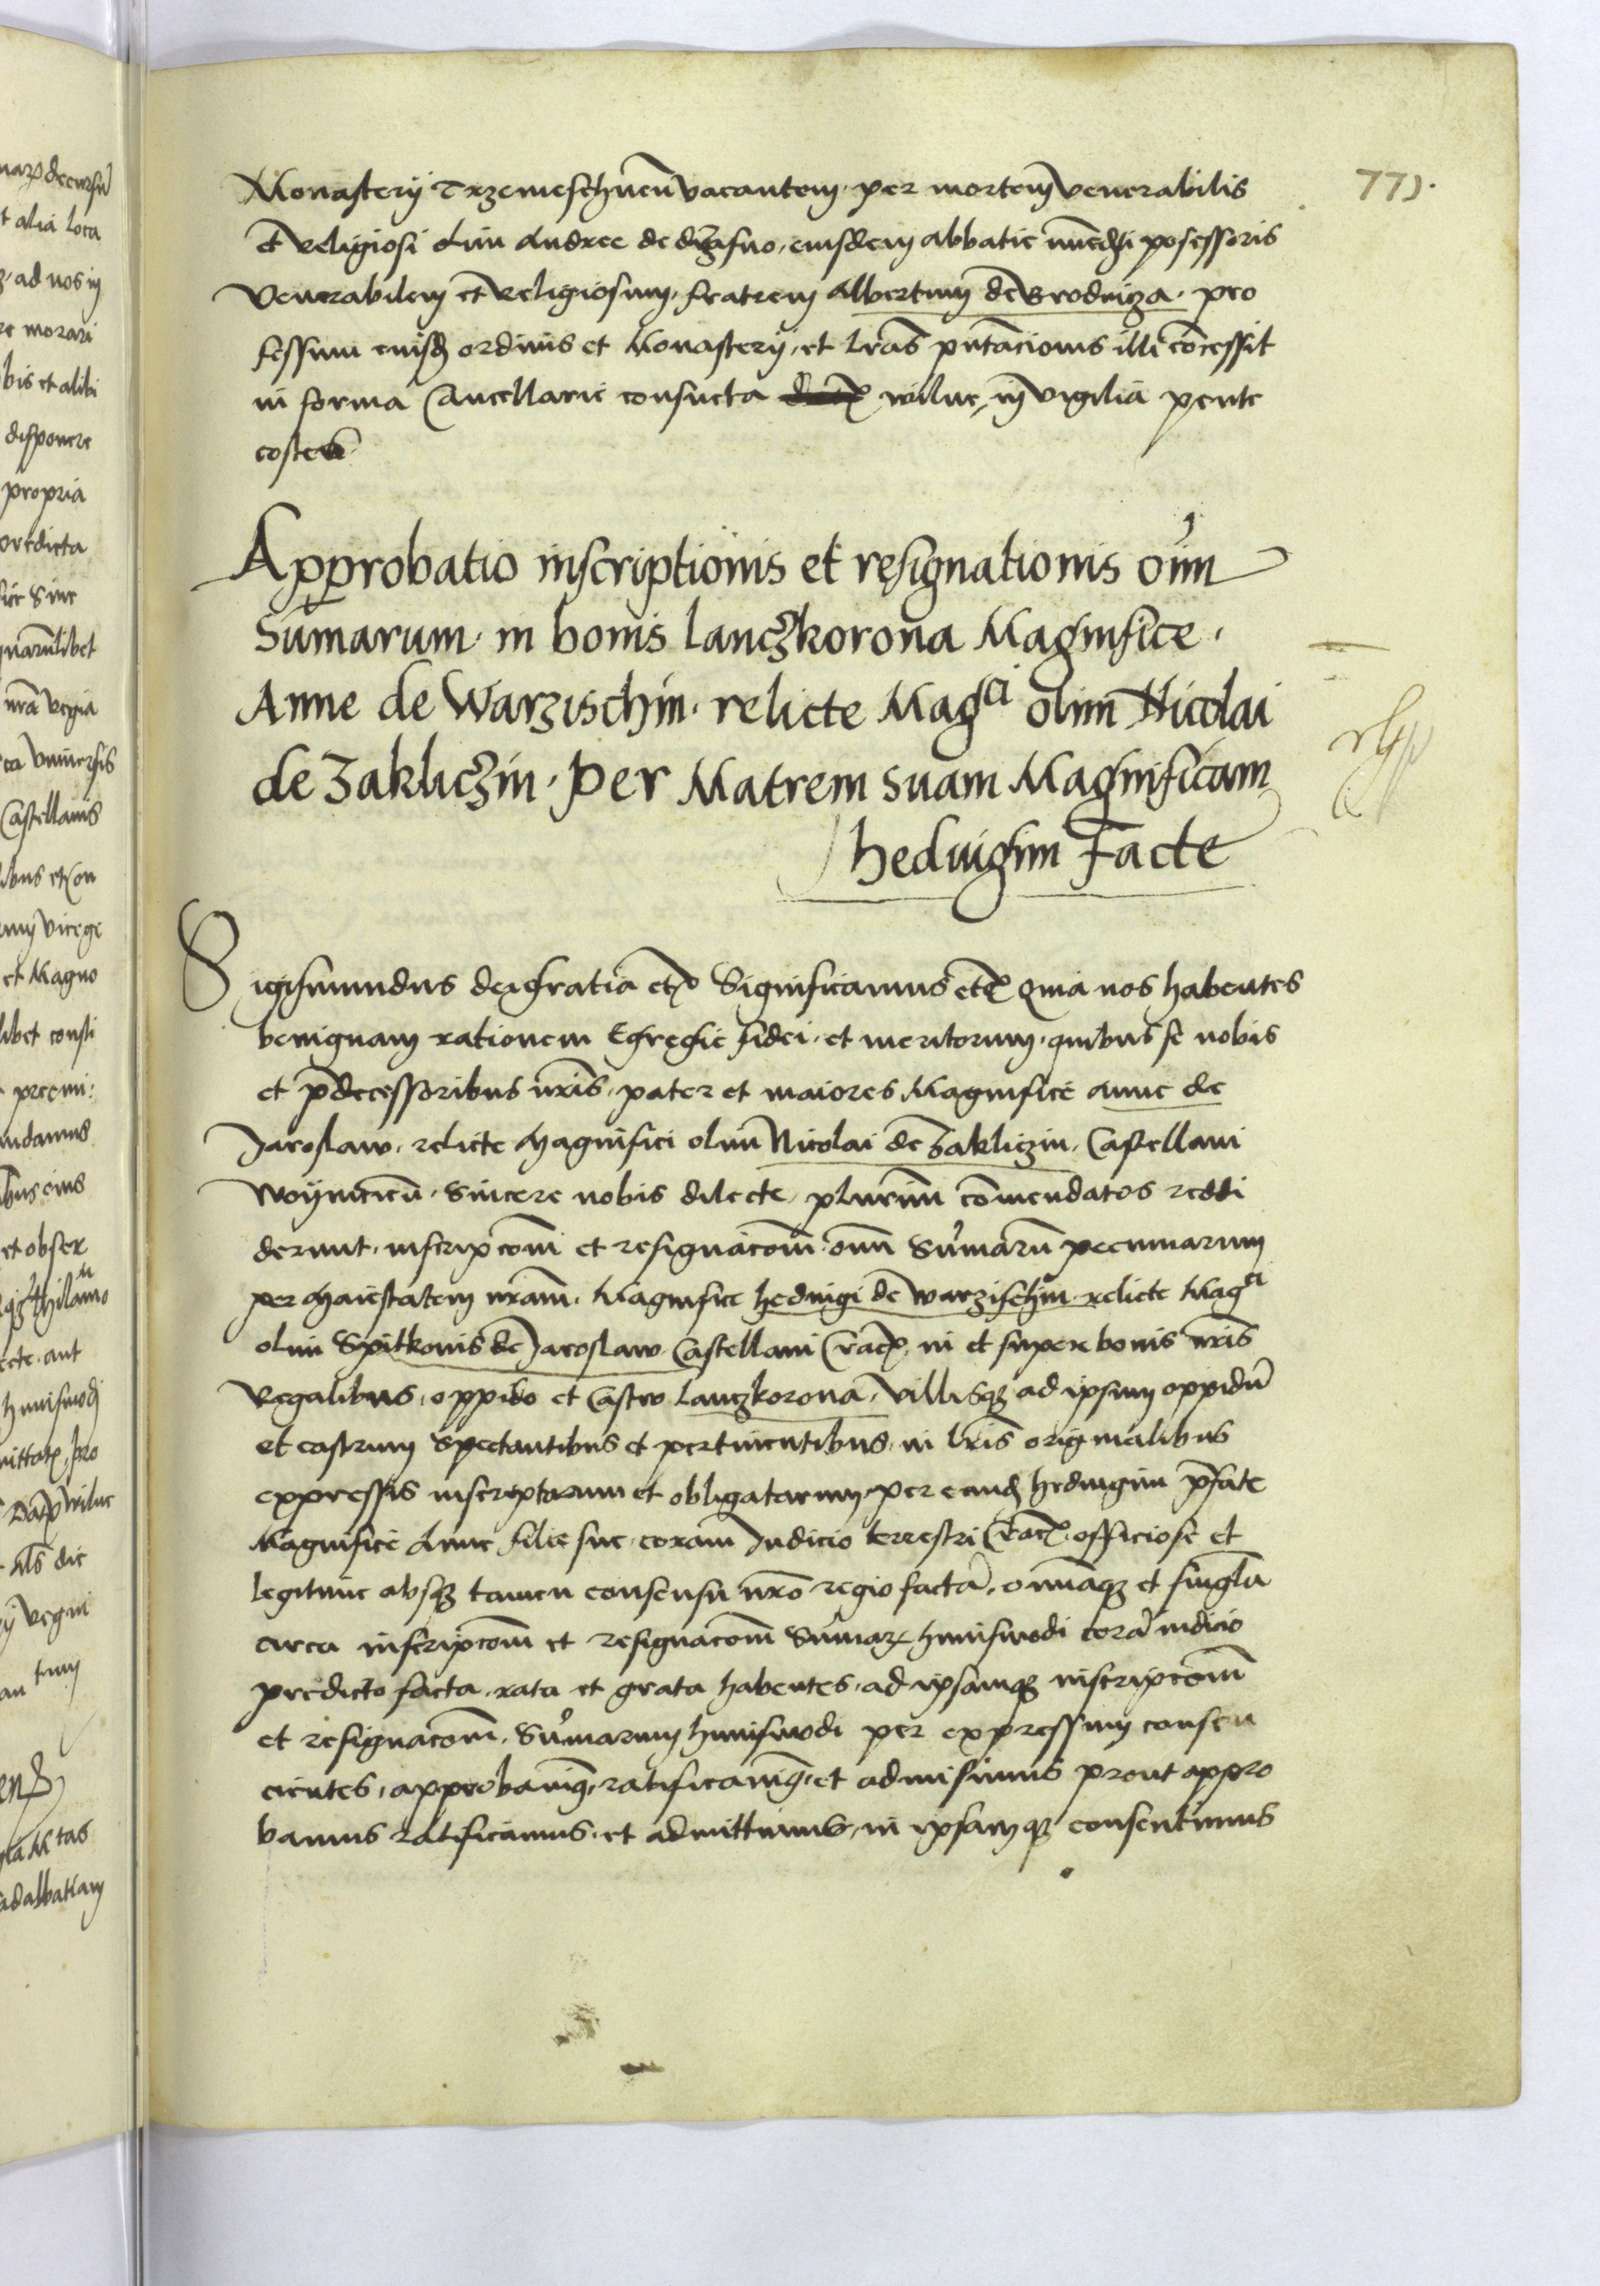 773.
Monasterij Trzemeschnen̄ vacantem per mortem venerabilis
et religiosi olim Andree de eiusdem abbatie possessoris
Venerabilem et religiosum fratrem Albertum de Brodniza pro
fessum eiusdē ordinis et Monasterij et l̄ras pn̄tacionis illi cōcessit
in forma Cancellarie consueta wilne, in vigilia pente
costes
Approbatio inscriptionis et resignationis oīm
Sūmarum in bonis Lanczkorona Magnifice
Anne de Warzischin relicte Mag^ci olim Nicolai
de Zakliczin per Matrem suam Magnificam
hedvigim Facte
Sigismundus dei gratia etc̄ Significamus etc̄ Quia nos habentes
benignam rationem Egregie fidei et meritorum quibus se nobis
et p̄decessoribus n̄ris pater et maiores Magnifice Anne de
Jaroslaw relicte Magnifici olim Nicolai de Zakliczin Castellani
woynicien̄ sincere nobis dilecte plurimū cōmendatos reddi
derunt inscripcōm et resignacōm oīm Sūmarū pecuniarum
per Maiestatem n̄ram Magnifice hedvigi de warzischin relicte Mag^ci
olim Spitkonis de Jaroslaw Castellani Crac̄ in et super bonis n̄ris
Regalibus oppido et Castro Lanczkorona villisq̄ ad ipsum oppidū
et castrum spectantibus et pertinentibus in l̄ris originalibus
expressis inscriptarum et obligatarum per eandē hedvigim p̄fate
Magnifice Anne filie sue coram Iudicio terrestri Crac̄ officiose et
legitime absq̄ tamen consensu n̄ro regio factā omniaq̄ et singl̄a
circa inscripcōm et resignacōm Sūmar̄ huiusmodi corā iudicio
predicto facta rata et grata habentes ad ipsamq̄ inscripcōm
et resignacōm Sūmarum huiusmodi per expressum consen
cientes approbavimq̄ ratificavimq̄ et admisimus prout appro
bamus ratificamus et admittimus in ipsamq̄ consentimus